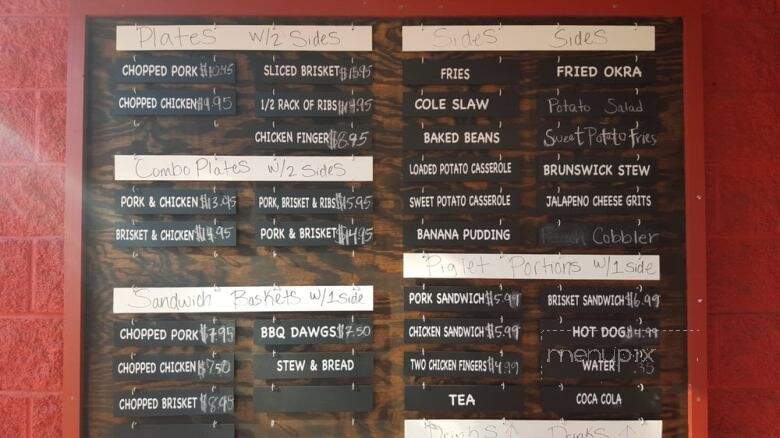 Plates w/2 Sides
CHOPPED PORK $10.95
SLICED BRISKET $13.95
CHOPPED CHICKEN $9.95
1/2 RACK OF RIBS $14.95
CHICKEN FINGER $8.95
Combo Plates w/2 Sides
PORK & CHICKEN $13.95
PORK, BRISKET & RIBS $15.95
BRISKET & CHICKEN $14.95
PORK & BRISKET $14.95
Sandwich Baskets w/1 side
CHOPPED PORK $7.95
BBQ DAWGS $7.50
CHOPPED CHICKEN $7.50
STEW & BREAD
CHOPPED BRISKET $8.95
Sides Sides
FRIES
FRIED OKRA
COLE SLAW
Potato Salad
BAKED BEANS
Sweet Potato Fries
LOADED POTATO CASSEROLE
BRUNSWICK STEW
SWEET POTATO CASSEROLE
JALAPENO CHEESE GRITS
BANANA PUDDING
Cobbler
Piglet Portions w/1 side
PORK SANDWICH $5.99
BRISKET SANDWICH $6.99
CHICKEN SANDWICH $5.99
HOT DOG $4.99
TWO CHICKEN FINGERS $4.99
WATER .35
TEA
COCA COLA
Drinks Drinks
menupix